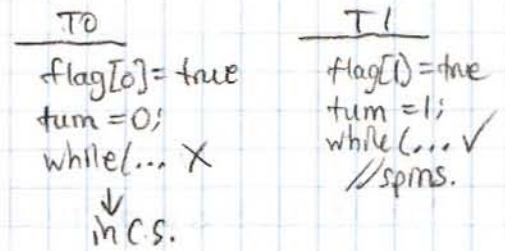 T0
flag[0]= true
turn =0;
while(... X
↓
in C.S.
T1
flag(1)=true
turn =1;
while(... ✓
//spins.